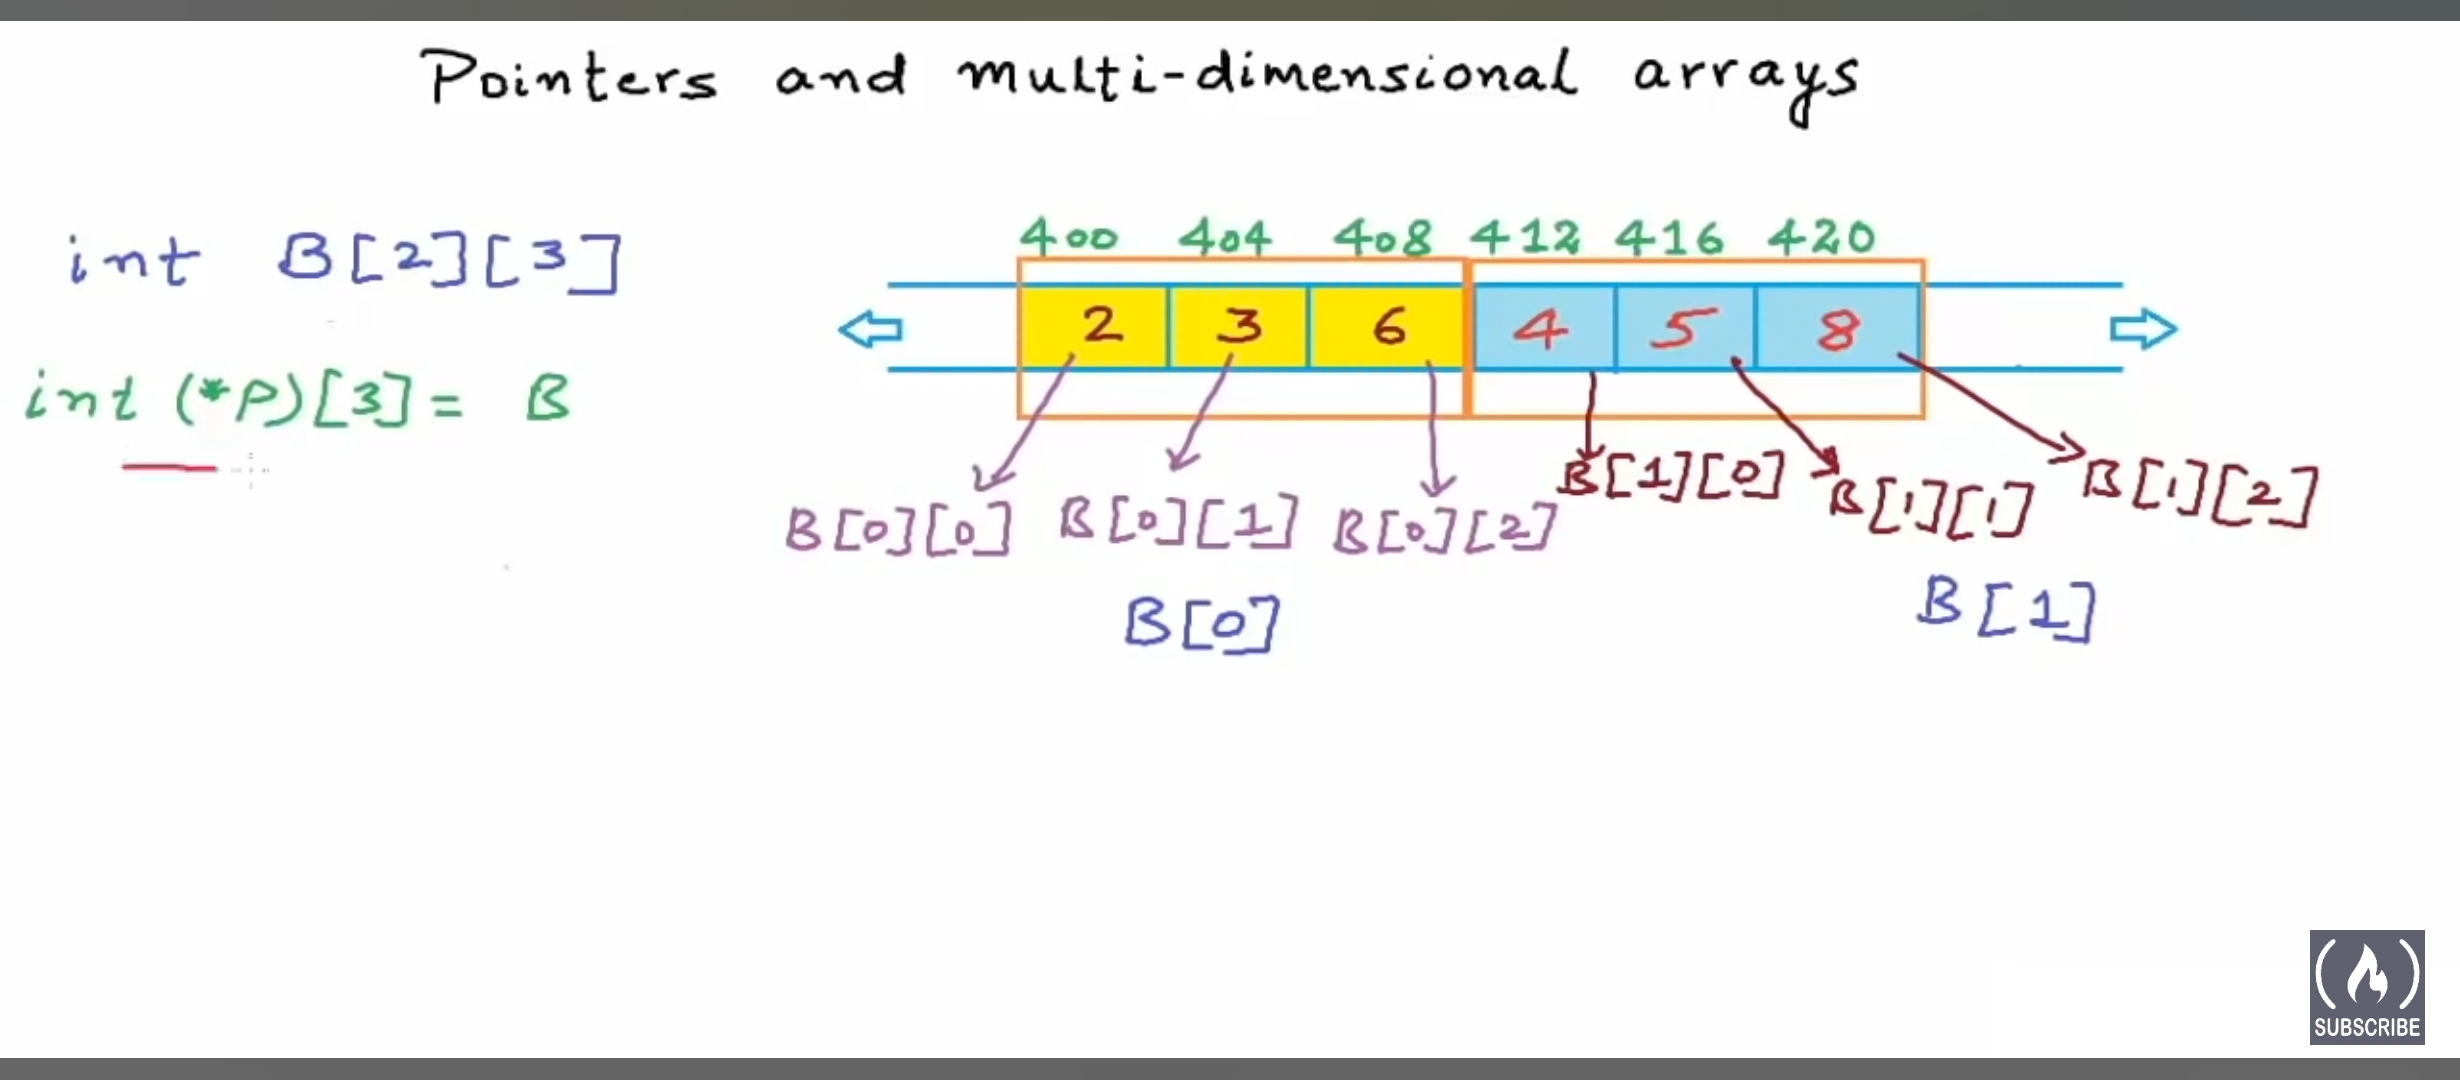 Pointers and multi-dimensional arrays
int B[2][3]
int (*P)[3] = B
400 404 408 412 416 420
2 3 6 4 5 8
B[0][0] B[0][1] B[0][2] B[1][0] B[1][1] B[1][2]
B[0] B[1]
SUBSCRIBE